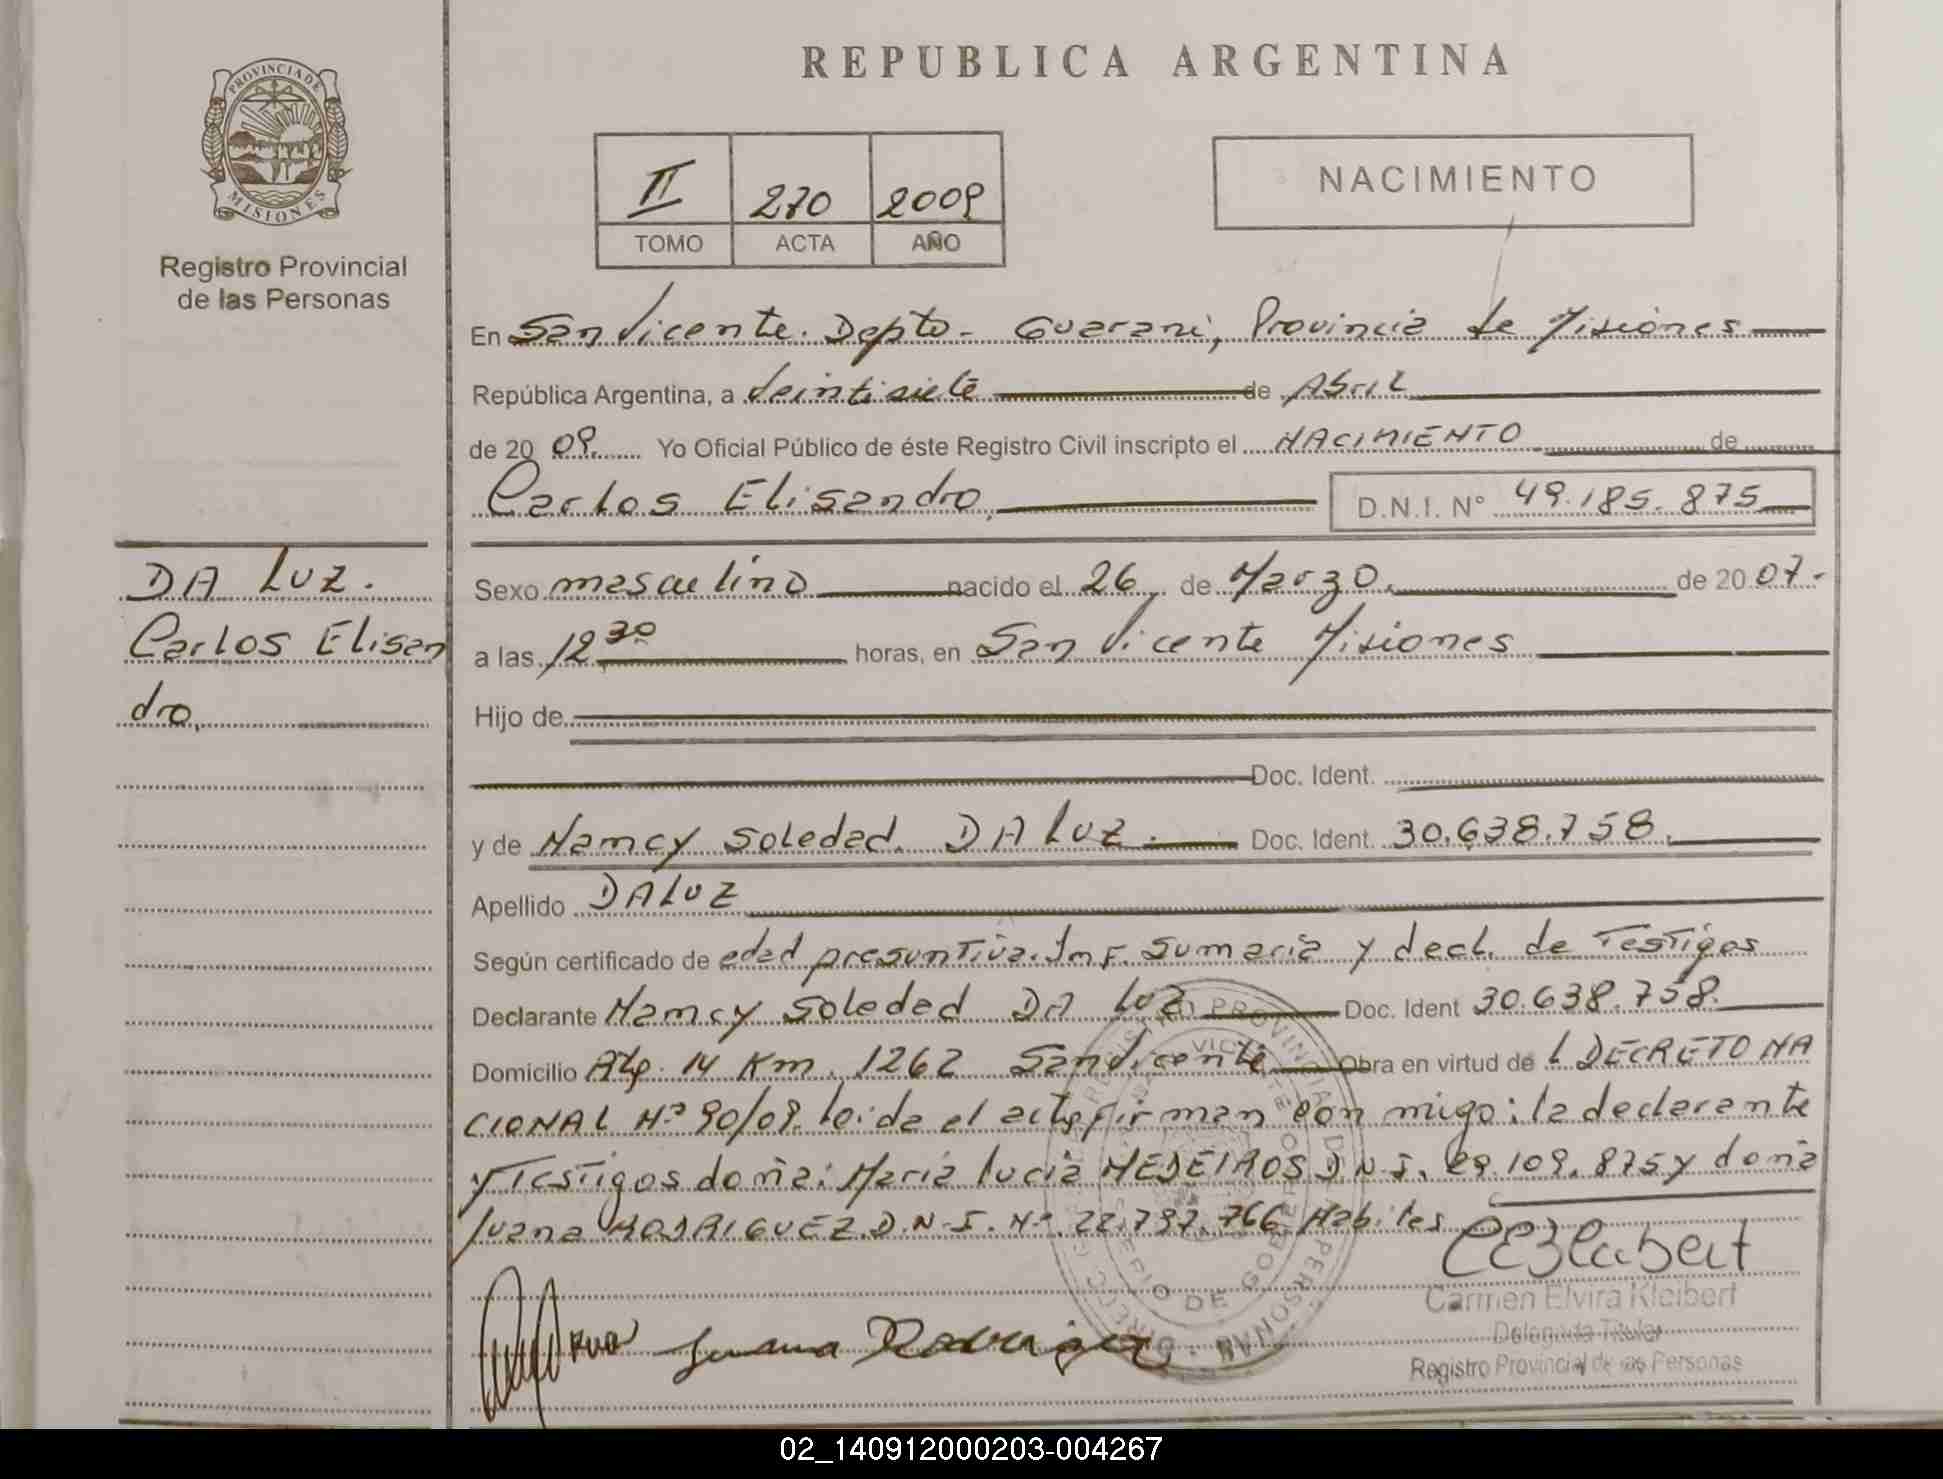 REPUBLICA ARGENTINA
PROVINCIA DE
MISIONES
Registro Provincial
de las Personas
II 270 2009
TOMO ACTA AÑO
NACIMIENTO
En San Vicente. Depto- Guarani, Provincia de Misiones
República Argentina, a Veintisiete de Abril
de 20 09. Yo Oficial Público de éste Registro Civil inscripto el NACIMIENTO de
Carlos Elisandro. D.N.I. N° 49.185.875
DA LUZ.
Carlos Elisan
dro.
Sexo masculino nacido el 26 de Marzo. de 20 07.-
a las 12 30 horas, en San Vicente Misiones
Hijo de
Doc. Ident.
y de Nancy Soledad. DA LUZ. Doc. Ident. 30.638.758.
Apellido DA LUZ
Según certificado de edad presuntiva. Inf. Sumaria y decl. de Testigos
Declarante Nancy Soledad DA LUZ Doc. Ident 30.638.758.
Domicilio 14 Km. 1262 San Vicente Obra en virtud de L DECRETO NA
CIONAL Nº 90/09. leida el acta firman con migo: la declarante
y Testigos doña: Maria Lucia MEDEIROS D.N.I. 29.109.875 y doña
Juana RODRIGUEZ. D.N.I. Nº 22.797.766 Habiles
Juana Rodriguez
Carmen Elvira Kleibert
Delegada Titular
Registro Provincial de las Personas
02_140912000203-004267